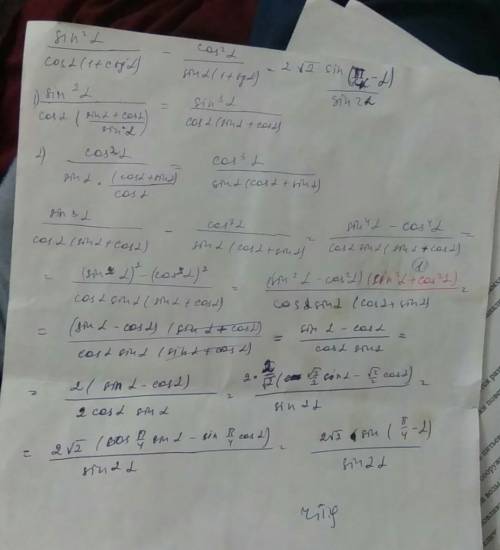 sin²α / cosα(1+ctgα) − cos²α / sinα(1+tgα) = 2√2 sin(π/4−α) / sin2α
1) sin²α / cosα(sinα+cosα / sinα) = sin³α / cosα(sinα+cosα)
2) cos²α / sinα·(cosα+sinα)/cosα = cos³α / sinα(cosα+sinα)
sin³α / cosα(sinα+cosα) − cos³α / sinα(cosα+sinα) = sin⁴α − cos⁴α / cosα sinα(sinα+cosα) =
= (sin²α)² − (cos²α)² / cosα sinα(sinα+cosα) = (sin²α − cos²α)(sin²α+cos²α) / cosα sinα(cosα+sinα) =
= (sinα − cosα)(sinα+cosα) / cosα sinα(sinα+cosα) = sinα − cosα / cosα sinα =
= 2(sinα − cosα) / 2cosα sinα = 2·2/√2(√2/2 sinα − √2/2 cosα) / sin2α =
= 2√2(cos π/4 sinα − sin π/4 cosα) / sin2α = 2√2 sin(π/4−α) / sin2α